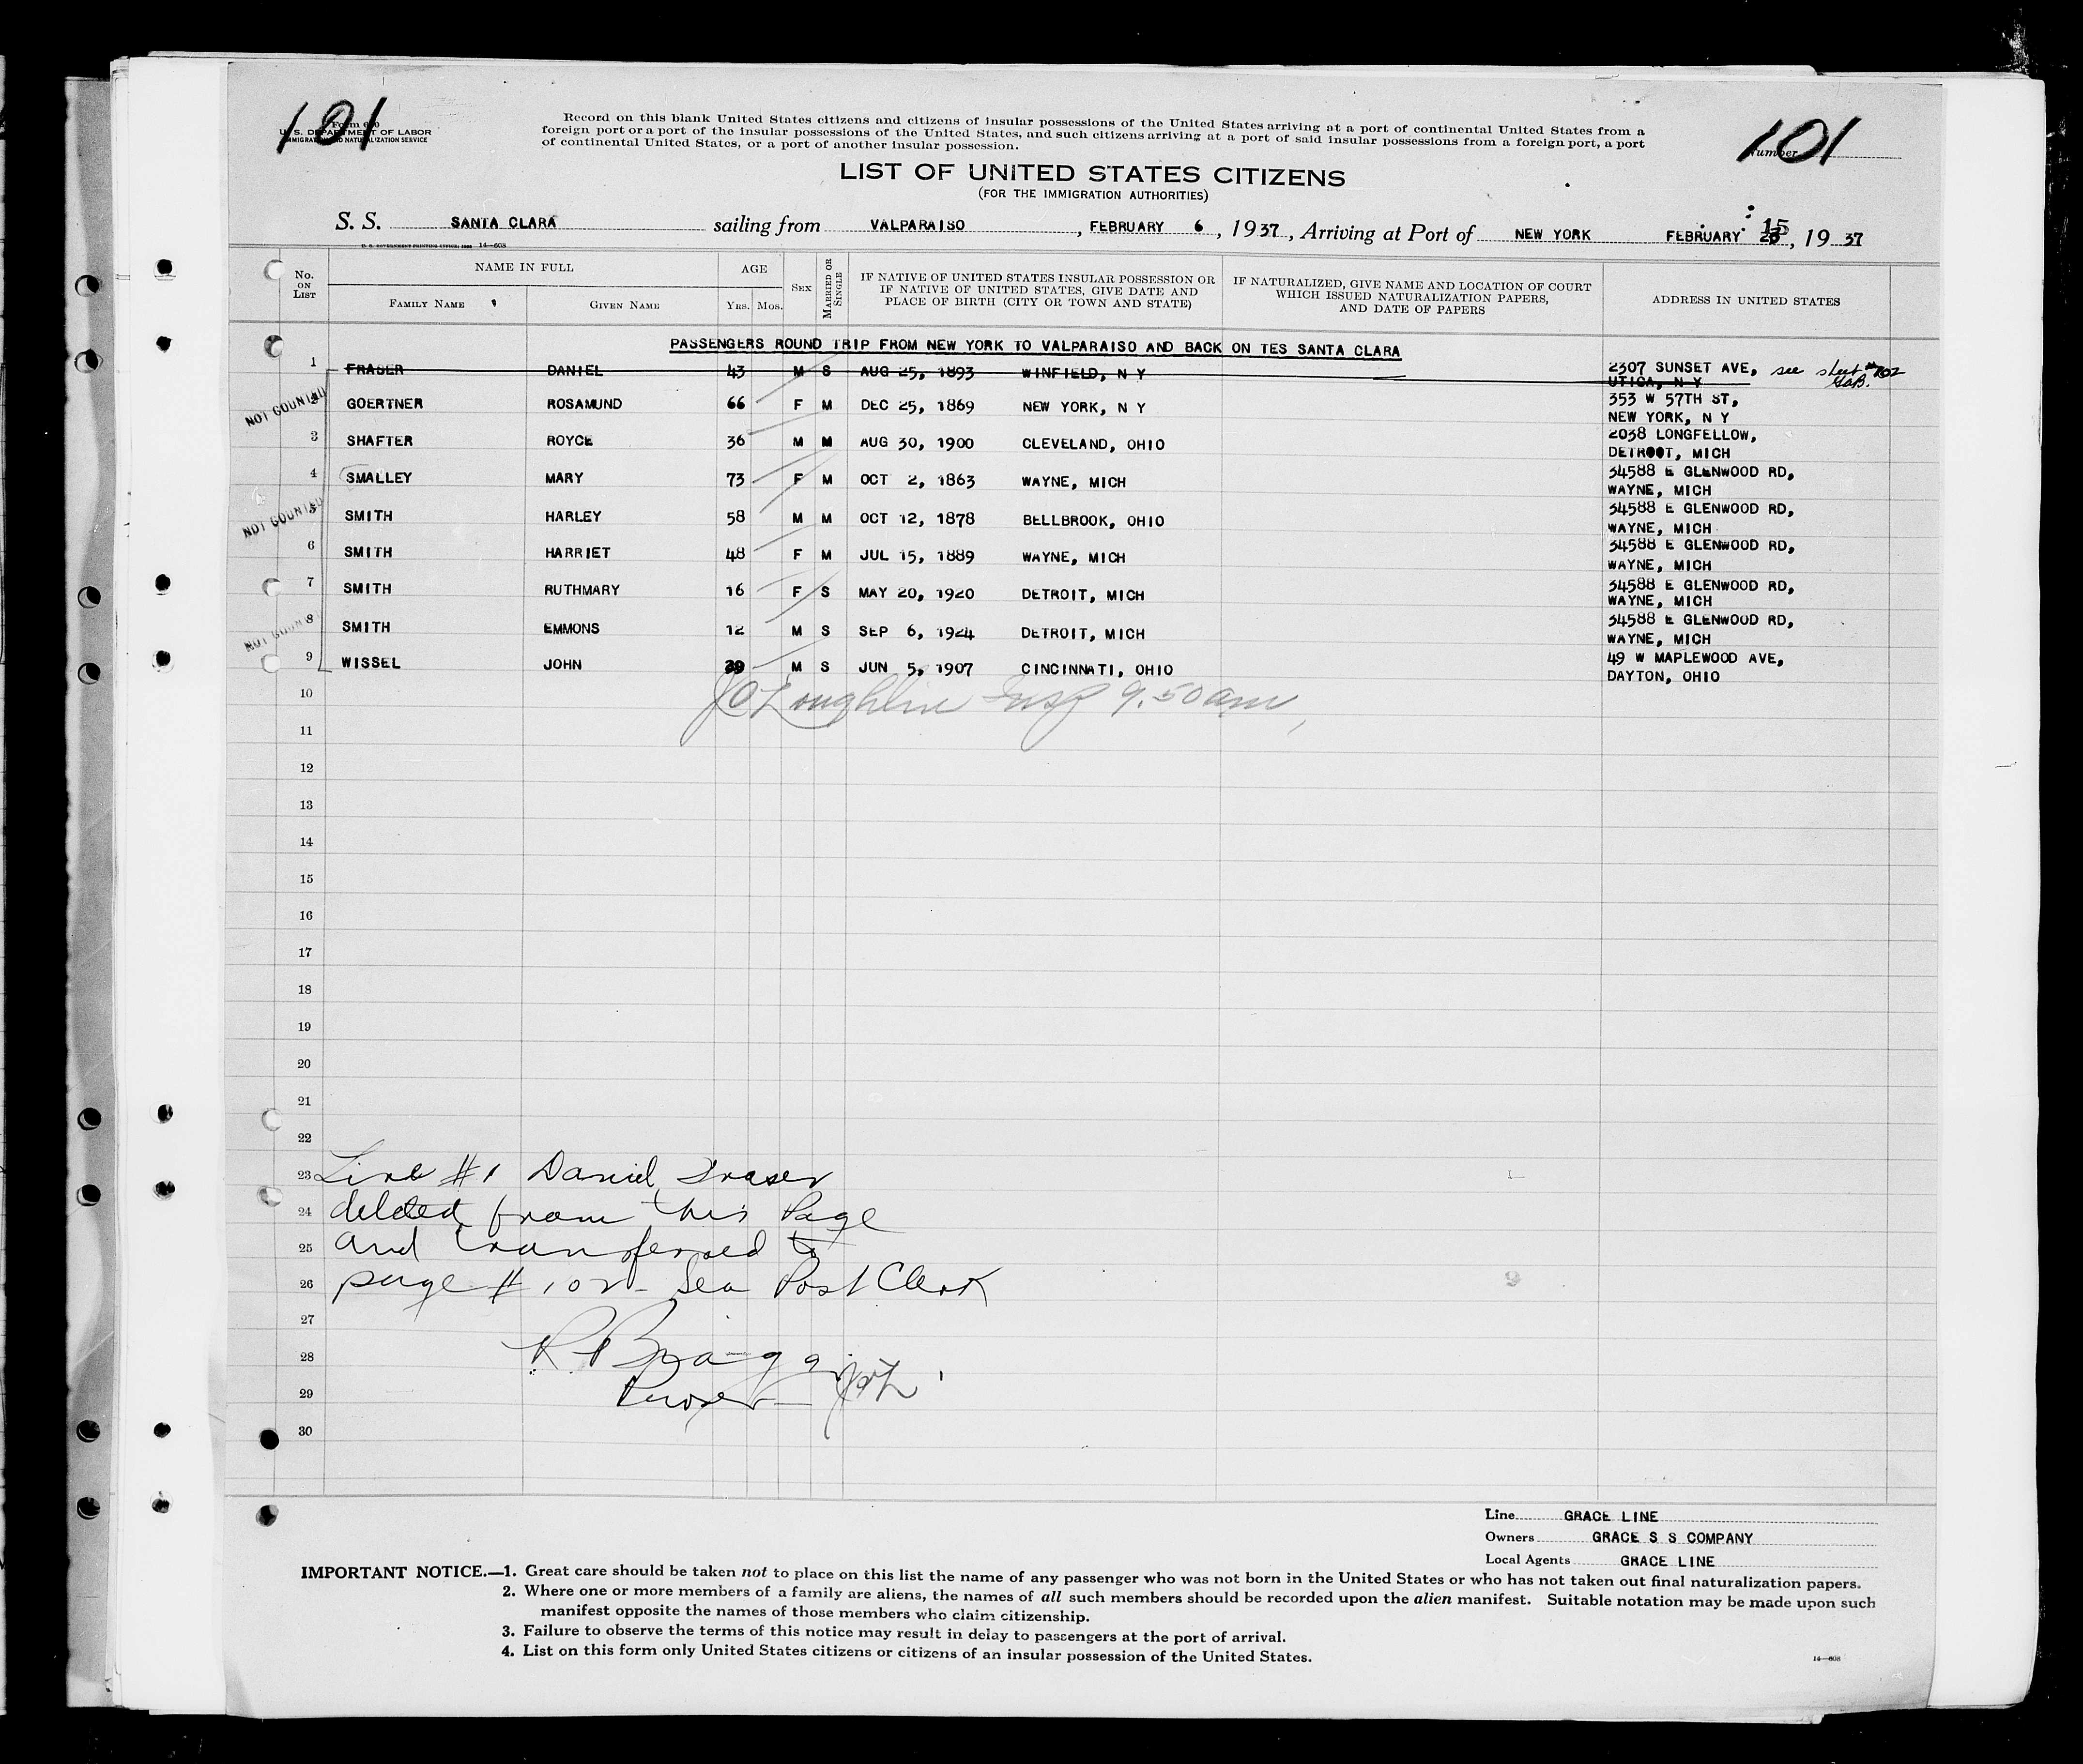 101
Form 630
U. S. DEPARTMENT OF LABOR
IMMIGRATION AND NATURALIZATION SERVICE
Record on this blank United States citizens and citizens of insular possessions of the United States arriving at a port of continental United States from a
foreign port or a port of the insular possessions of the United States, and such citizens arriving at a port of said insular possessions from a foreign port, a port
of continental United States, or a port of another insular possession.
101
Number
LIST OF UNITED STATES CITIZENS
(FOR THE IMMIGRATION AUTHORITIES)
S. S. SANTA CLARA sailing from VALPARAISO, FEBRUARY 6, 1937, Arriving at Port of NEW YORK FEBRUARY 15, 1937
U. S. GOVERNMENT PRINTING OFFICE 14—608
No. ON LIST NAME IN FULL AGE SEX MARRIED OR SINGLE IF NATIVE OF UNITED STATES INSULAR POSSESSION OR IF NATIVE OF UNITED STATES, GIVE DATE AND PLACE OF BIRTH (CITY OR TOWN AND STATE) IF NATURALIZED, GIVE NAME AND LOCATION OF COURT WHICH ISSUED NATURALIZATION PAPERS, AND DATE OF PAPERS ADDRESS IN UNITED STATES
FAMILY NAME GIVEN NAME YRS. MOS.
PASSENGERS ROUND TRIP FROM NEW YORK TO VALPARAISO AND BACK ON TES SANTA CLARA
1 FRASER DANIEL 43 M S AUG 25, 1893 WINFIELD, N Y 2307 SUNSET AVE, see sheet #102
UTICA, N Y
NOT COUNTED
2 GOERTNER ROSAMUND 66 F M DEC 25, 1869 NEW YORK, N Y 353 W 57TH ST,
NEW YORK, N Y
3 SHAFTER ROYCE 36 M M AUG 30, 1900 CLEVELAND, OHIO 2038 LONGFELLOW,
DETROOT, MICH
4 SMALLEY MARY 73 F M OCT 2, 1863 WAYNE, MICH 34588 E GLENWOOD RD,
WAYNE, MICH
NOT COUNTED
5 SMITH HARLEY 58 M M OCT 12, 1878 BELLBROOK, OHIO 34588 E GLENWOOD RD,
WAYNE, MICH
6 SMITH HARRIET 48 F M JUL 15, 1889 WAYNE, MICH 34588 E GLENWOOD RD,
WAYNE, MICH
7 SMITH RUTHMARY 16 F S MAY 20, 1920 DETROIT, MICH 34588 E GLENWOOD RD,
WAYNE, MICH
NOT COUNTED
8 SMITH EMMONS 12 M S SEP 6, 1924 DETROIT, MICH 34588 E GLENWOOD RD,
WAYNE, MICH
9 WISSEL JOHN 29 M S JUN 5, 1907 CINCINNATI, OHIO 49 W MAPLEWOOD AVE,
DAYTON, OHIO
10 JO'Loughlin Insp 9.50 am
11
12
13
14
15
16
17
18
19
20
21
22
23 Line #1 Daniel Fraser
24 deleted from this Page
25 and transferred to
26 page # 102 - Sea Post Clerk
27
28 Bragg
29 Purser
30
Line GRACE LINE
Owners GRACE S S COMPANY
Local Agents GRACE LINE
IMPORTANT NOTICE.—1. Great care should be taken not to place on this list the name of any passenger who was not born in the United States or who has not taken out final naturalization papers.
2. Where one or more members of a family are aliens, the names of all such members should be recorded upon the alien manifest. Suitable notation may be made upon such
manifest opposite the names of those members who claim citizenship.
3. Failure to observe the terms of this notice may result in delay to passengers at the port of arrival.
4. List on this form only United States citizens or citizens of an insular possession of the United States.
14—608